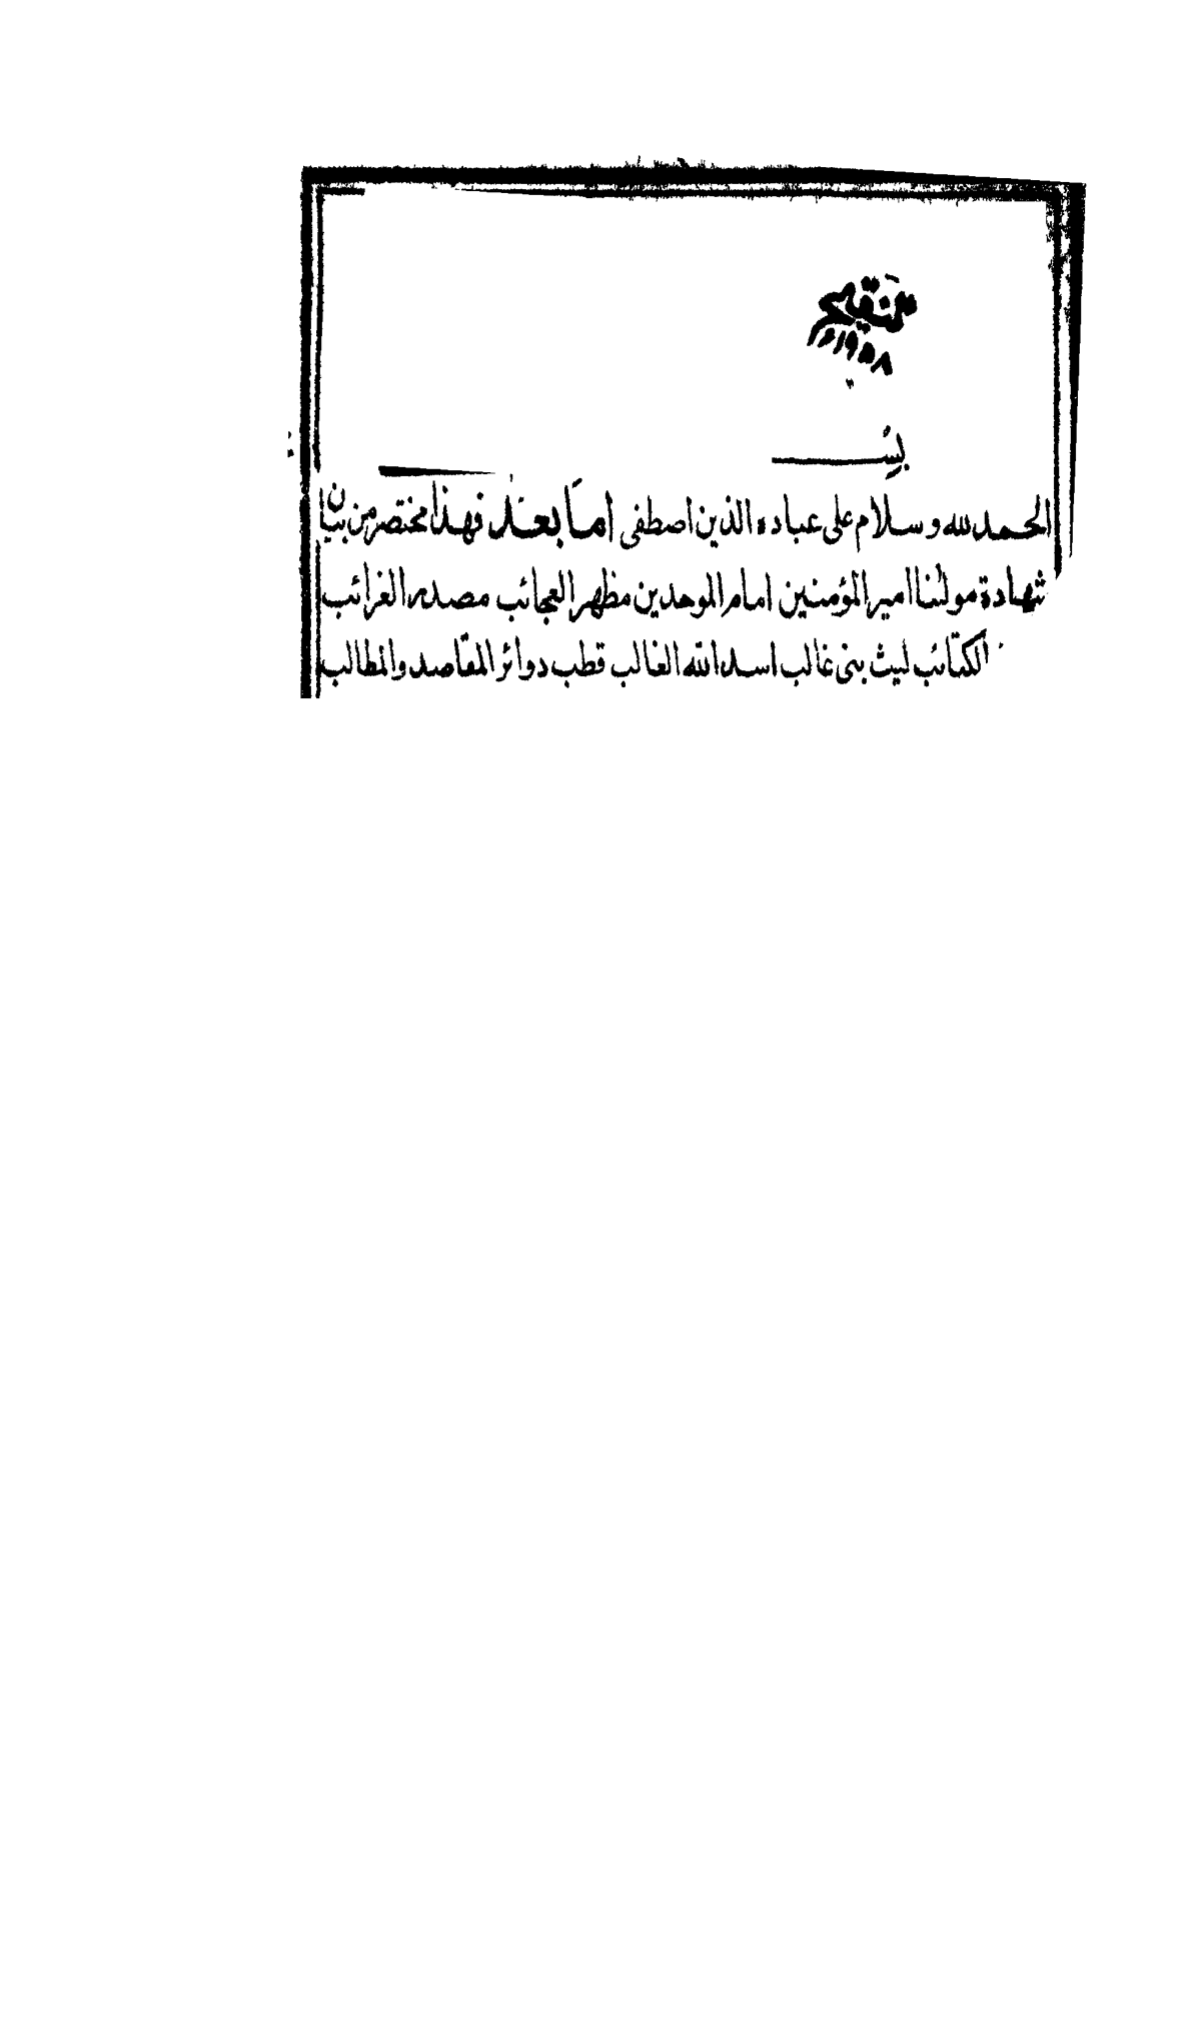 تنقيح
۱۹۵۸ء
بِسْ
الحمد لله وسلام على عباده الذين اصطفى أما بعد فهذا مختصر من بيان
شهادة مولٰنا امير المؤمنين امام الموحدين مظهر العجائب مصدر الغرائب
الكتائب ليث بنى غالب اسد الله الغالب قطب دوائر المقاصد والمطالب